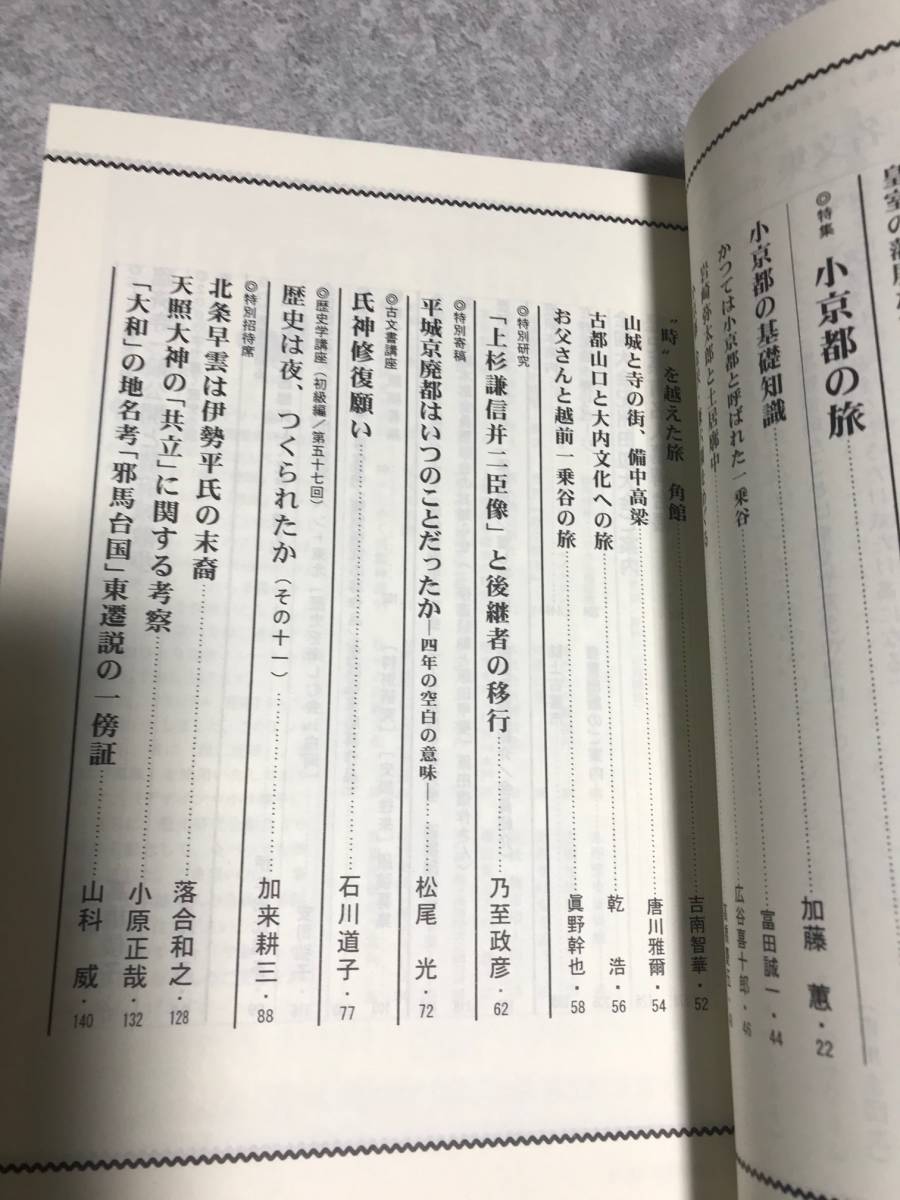 ◎特集
小京都の旅……加藤 蕙・22
小京都の基礎知識……富田誠一・44
かつては小京都と呼ばれた一乗谷……広谷喜十郎・46
岩崎弥太郎と土居廓中
〝時〟を越えた旅 角館……吉南智華・52
山城と寺の街、備中高梁……唐川雅爾・54
古都山口と大内文化への旅……乾 浩・56
お父さんと越前一乗谷の旅……眞野幹也・58
◎特別研究
「上杉謙信并二臣像」と後継者の移行……乃至政彦・62
◎特別寄稿
平城京廃都はいつのことだったか―四年の空白の意味―……松尾 光・72
◎古文書講座
氏神修復願い……石川道子・77
◎歴史学講座(初級編/第五十七回)
歴史は夜、つくられたか(その十一)……加来耕三・88
◎特別招待席
北条早雲は伊勢平氏の末裔……落合和之・128
天照大神の「共立」に関する考察……小原正哉・132
「大和」の地名考「邪馬台国」東遷説の一傍証……山科 威・140